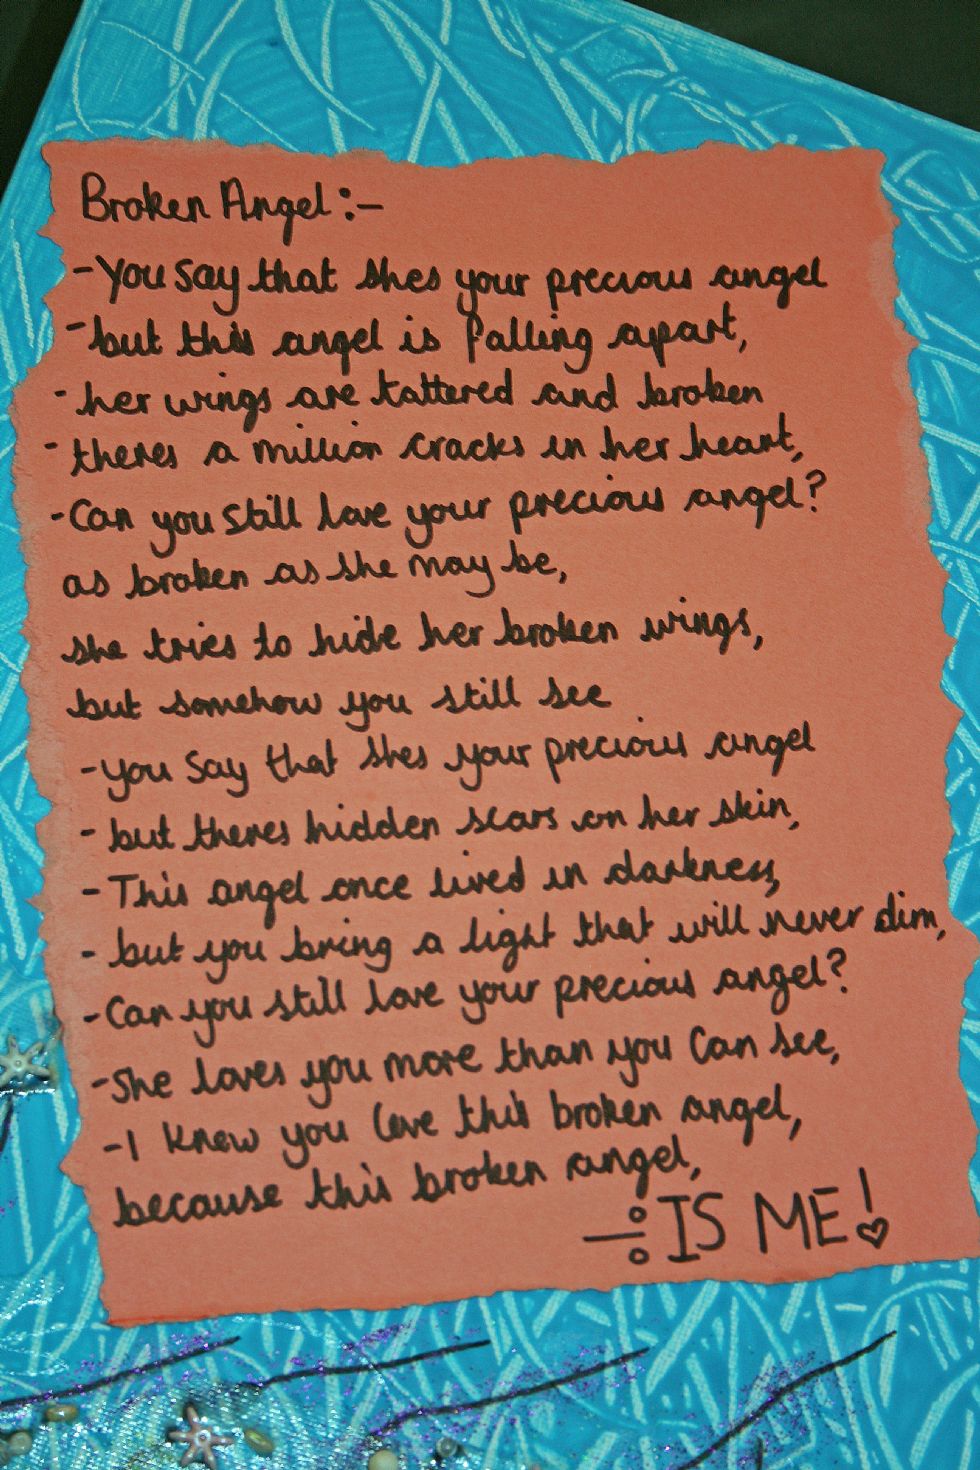 Broken Angel :-
- You say that shes your precious angel
- but this angel is falling apart,
- her wings are tattered and broken
- theres a million cracks in her heart,
- Can you still love your precious angel?
as broken as she may be,
she tries to hide her broken wings,
but somehow you still see
- you say that shes your precious angel
- but theres hidden scars on her skin,
- This angel once lived in darkness,
- but you bring a light that will never dim,
- Can you still love your precious angel?
- She loves you more than you Can see,
- I know you love this broken angel,
because this broken angel,
-: IS ME!